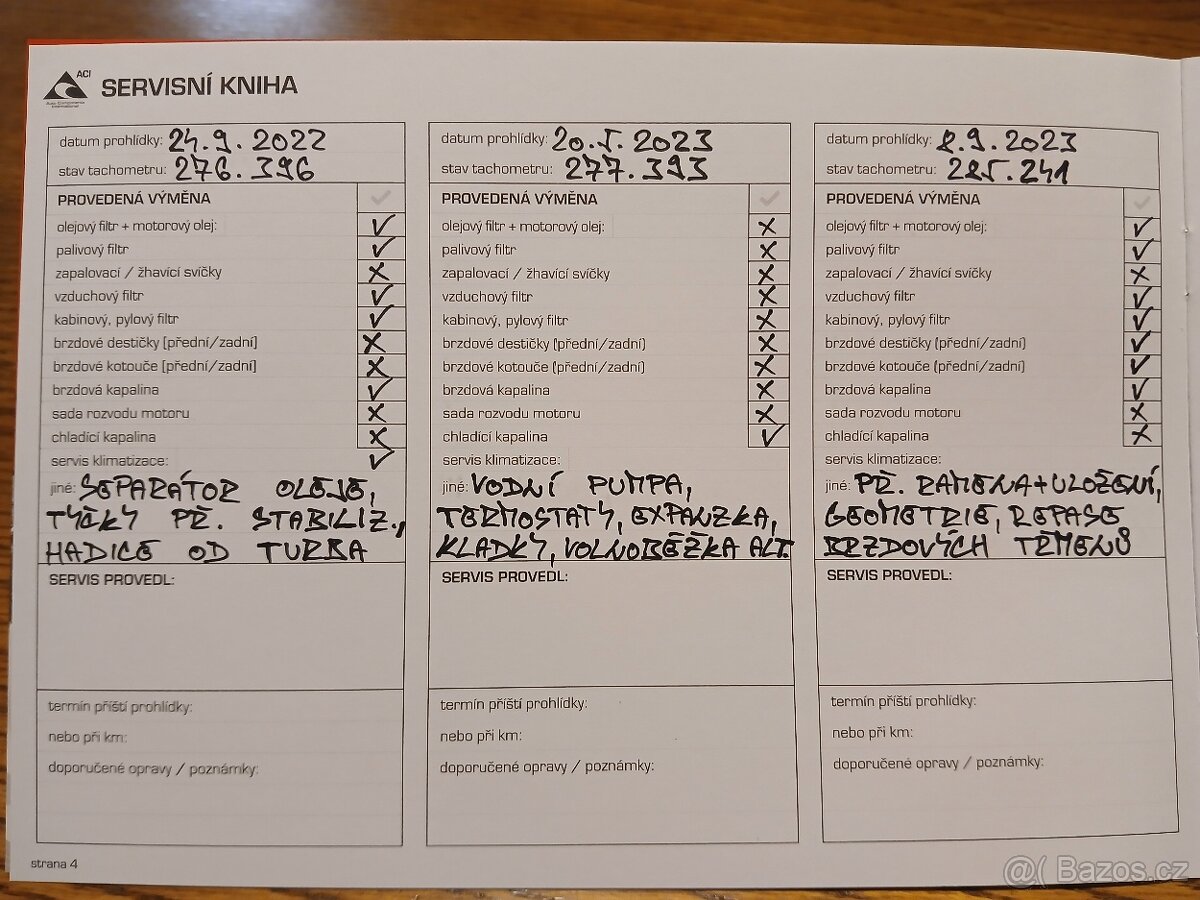 ACI
SERVISNÍ KNIHA
datum prohlídky: 24.9.2022
stav tachometru: 276.396
PROVEDENÁ VÝMĚNA ✓
olejový filtr + motorový olej: ✓
palivový filtr ✓
zapalovací / žhavící svíčky ✗
vzduchový filtr ✓
kabinový, pylový filtr ✓
brzdové destičky [přední/zadní] ✗
brzdové kotouče [přední/zadní] ✗
brzdová kapalina ✓
sada rozvodu motoru ✗
chladící kapalina ✗
servis klimatizace: ✓
jiné: SEPARÁTOR OLEJE,
TYČKY PŘ. STABILIZ.,
HADICE OD TURBA
SERVIS PROVEDL:
termín příští prohlídky:
nebo při km:
doporučené opravy / poznámky:
datum prohlídky: 20.5.2023
stav tachometru: 277.393
PROVEDENÁ VÝMĚNA ✓
olejový filtr + motorový olej: ✗
palivový filtr ✗
zapalovací / žhavící svíčky ✗
vzduchový filtr ✗
kabinový, pylový filtr ✗
brzdové destičky (přední/zadní) ✗
brzdové kotouče (přední/zadní) ✗
brzdová kapalina ✗
sada rozvodu motoru ✗
chladící kapalina ✓
servis klimatizace:
jiné: VODNÍ PUMPA,
TERMOSTATY, EXPANZKA,
KLADKY, VOLNOBĚŽKA ALT.
SERVIS PROVEDL:
termín příští prohlídky:
nebo při km:
doporučené opravy / poznámky:
datum prohlídky: 2.9.2023
stav tachometru: 285.241
PROVEDENÁ VÝMĚNA ✓
olejový filtr + motorový olej: ✓
palivový filtr ✓
zapalovací / žhavící svíčky ✗
vzduchový filtr ✓
kabinový, pylový filtr ✓
brzdové destičky (přední/zadní) ✓
brzdové kotouče (přední/zadní) ✓
brzdová kapalina ✓
sada rozvodu motoru ✗
chladící kapalina ✗
servis klimatizace:
jiné: PŘ. RAMENA+ULOŽENÍ,
GEOMETRIE, REPASE
BRZDOVÝCH TŘMENŮ
SERVIS PROVEDL:
termín příští prohlídky:
nebo při km:
doporučené opravy / poznámky:
strana 4
@( Bazos.cz